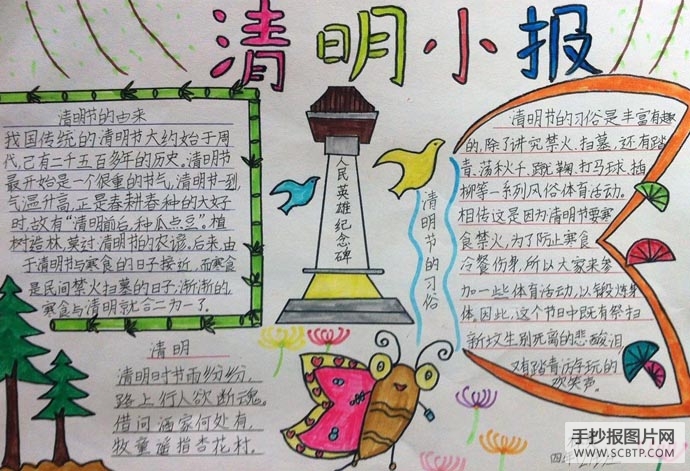 清明小报
清明节的由来
我国传统的清明节大约始于周
代,已有二千五百多年的历史。清明节
最开始是一个很重的节气,清明节一到,
气温升高,正是春耕春种的大好
时,故有“清明前后,种瓜点豆”。植
树造林,莫过清明节的农谚。后来,由
于清明节与寒食的日子接近,而寒食
是民间禁火扫墓的日子,渐渐的
寒食与清明就合二为一了。
清明
清明时节雨纷纷,
路上行人欲断魂。
借问酒家何处有,
牧童遥指杏花村。
人民英雄纪念碑
清明节的习俗
清明节的习俗是丰富有趣
的,除了讲究禁火、扫墓,还有踏
青、荡秋千、蹴鞠、打马球、插
柳等一系列风俗体育活动。
相传这是因为清明节要寒
食禁火,为了防止寒食
冷餐伤身,所以大家来参
加一些体育活动,以锻炼身
体。因此,这个节日中既有祭扫
新坟生别死离的悲酸泪,
又有踏青游玩的
欢笑声。
手抄报图片网
WWW.SCBTP.COM